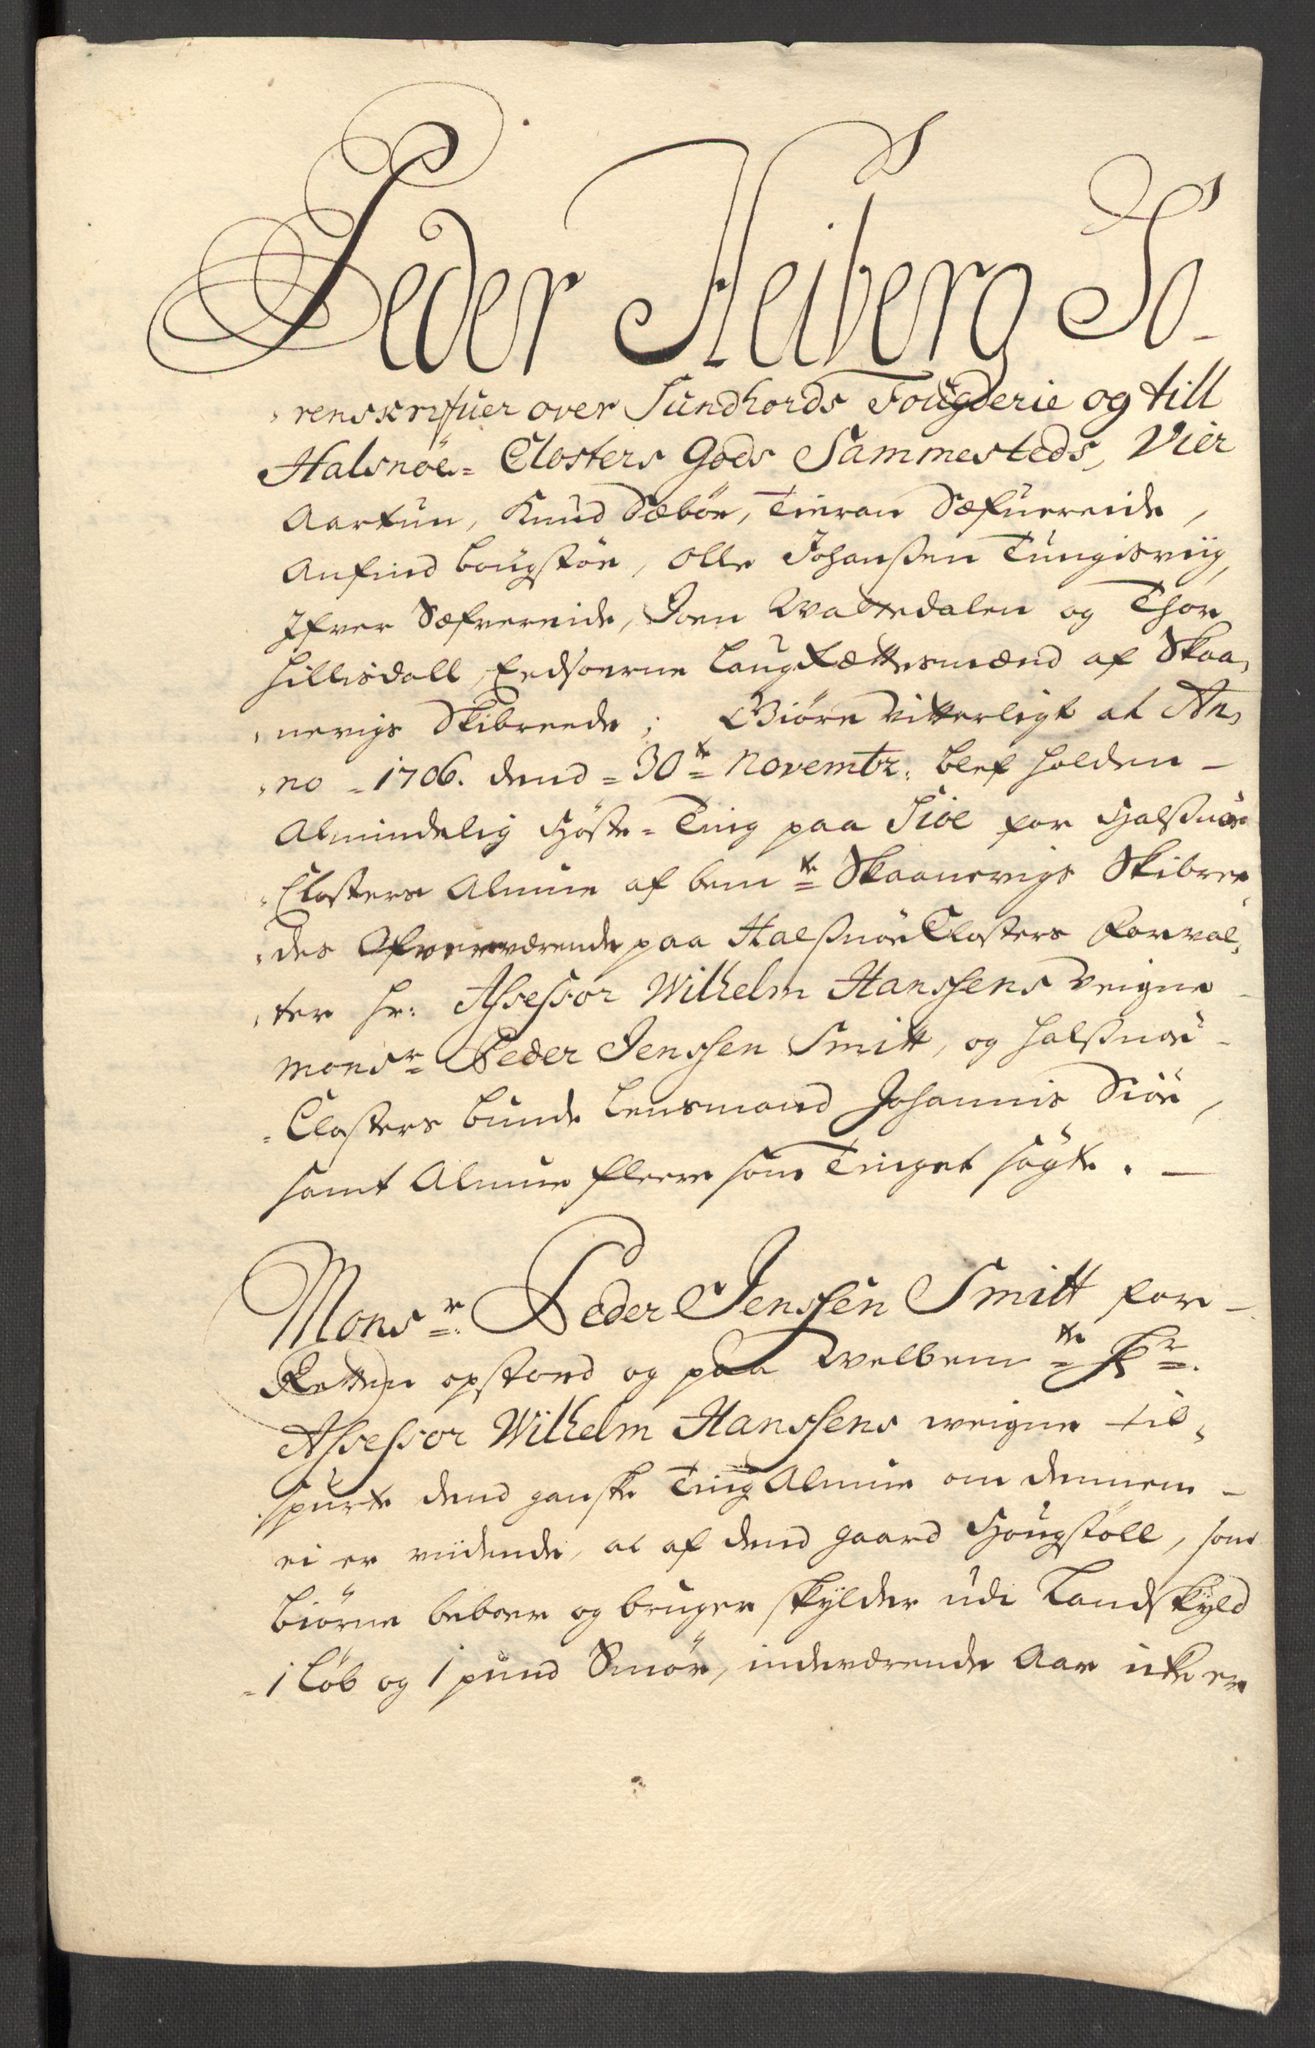 Peder Heiberg So-
renskrifuer over Sundhords Fougderie og till
Halsnöe- Closters Gods Sammesteds, Vier
Aartun, Knud Sæböe, Tieran Sæfuereide,
Anfind Hougstöe, Olle Johanßen Tungisviig,
Ifver Sæfvereide, Joen Walttedalen og Thor
Hillisdall Eedsorne Laugrættesmænd af Skaa,
nevigs Skibreede; Giöre Vitterligt at An,
no - 1706. dend = 30te Novembr: blef holden -
Almindelig Höste-Ting paa Siöe for Halßnöe
Closters Almue af bemte Skaanevigs Skibree
des Ofverværende paa Halßnöe Closters Forval,
ter Hr: Assessor Wilhelm Hanssens Veigne -
Monsr Peder Jenssen Smitt, og Halßnöe -
Closters bunde Lensmand Johannis Siöe,
samt Almue fleere som Tinget sögte. -
Monsr: Peder Jenssen Smitt for -
Retten opstoed og paa Welbemte Hr.
Assessor Wilhelm Hanssens weigne til,
spurte dend ganske Ting Almue om dennem -
ei er viidende, at af dend gaard Hougstöll, som
Biörne beboer og bruger skylder udi Landskyld
1 Löb og 1 pund Smör, indeværende Aar icke er